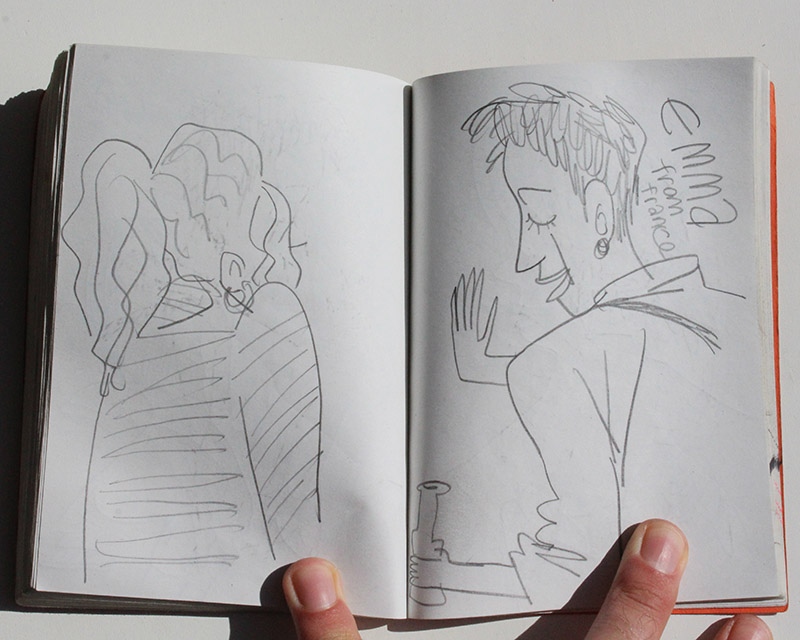 emma
from
france